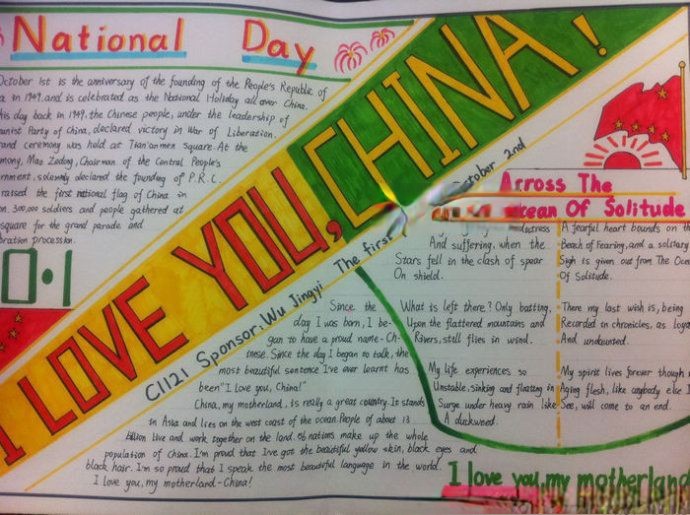 National Day
October 1st is the anniversary of the founding of the People's Republic of
in 1949, and is celebrated as the National Holiday all over China.
his day back in 1949, the Chinese people, under the leadership of
unist Party of China, declared victory in War of Liberation.
and ceremony was held at Tian'anmen Square. At the
mony, Mao Zedong, Chairman of the Central People's
rnment, solemnly declared the founding of P.R.C.
raised the first national flag of China in
on. 300,000 soldiers and people gathered at
square for the grand parade and
bration procession.
10·1
I LOVE YOU, CHINA!
C1121 Sponsor: Wu Jingyi The first
October 2nd
Since the
day I was born, I be-
gan to have a proud name-Ch-
inese. Since the day I began to talk, the
most beautiful sentence I've ever learnt has
been "I love you, China!"
China, my motherland, is really a great country. It stands
in Asia and lies on the west coast of the ocean. People of about 13
billion live and work together on the land. 56 nations make up the whole
population of China. I'm proud that I've got the beautiful yellow skin, black eyes and
black hair. I'm so proud that I speak the most beautiful language in the world.
I love you, my motherland-China!
Arross The
cean Of Solitude
And suffering, when the
Stars fell in the clash of spear
On shield.
What is left there? Only batting,
Upon the flattered mountains and
Rivers, still flies in wind.
My life experiences so
Unstable, sinking and floating in
Surge under heavy rain like
A duckweed.
A fearful heart bounds on th
Beach of Fearing, and a solitary
Sigh is given out from The Oce
Of Solitude.
There my last wish is, being
Recorded in chronicles, as loya
And undaunted.
My spirit lives forever though
Aging flesh, like anybody else I
See, will come to an end.
I love you, my motherland